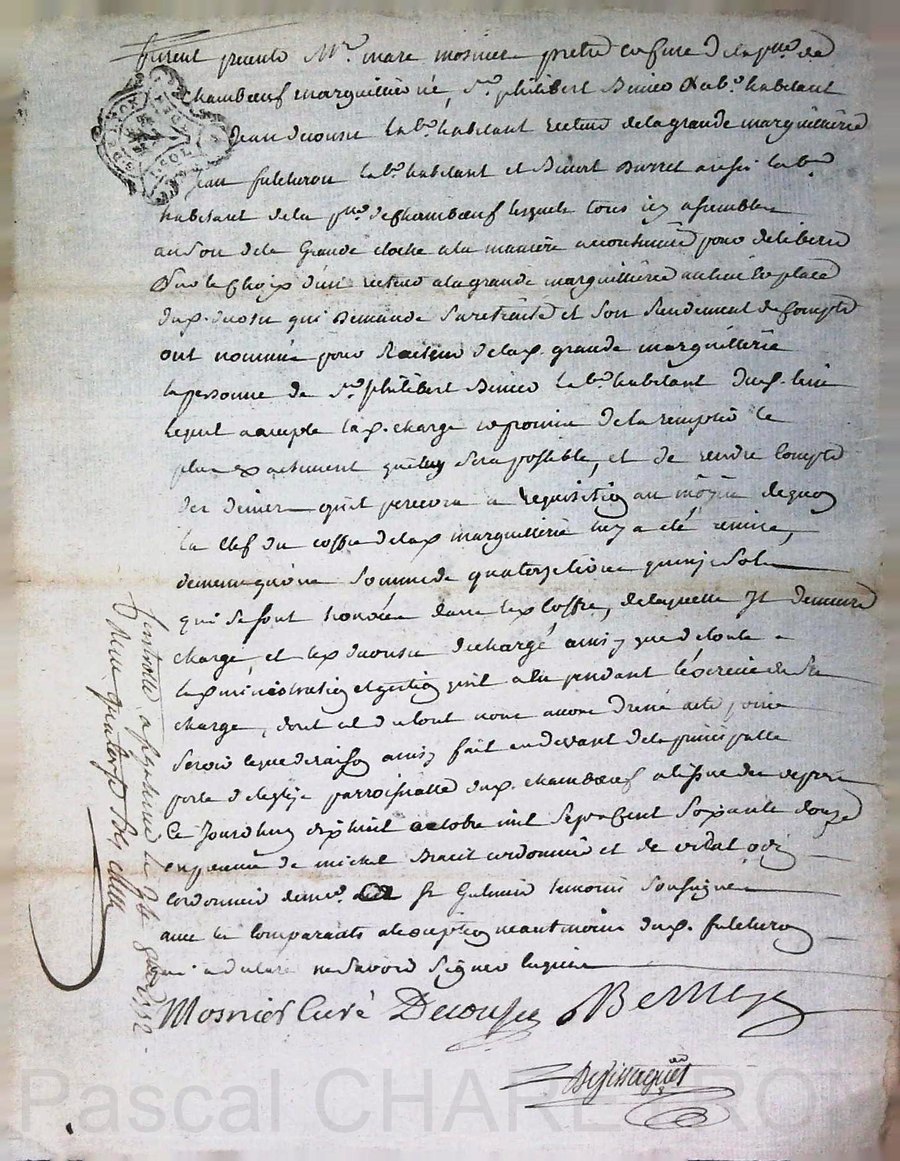 furent presents Mre. marc mosnier pretre et cure de la psse. de
chambœuf marguillier né, sr. philibert labr. habitant
Jean decousu labr. habitant recteur de la grande marguillierie
Jean fulcheron labr. habitant et Benoit aussi labr.
habitant de la psse. de Chambœuf lesquels tous icy assemblés
au son de la Grande cloche a la maniere accoutumée pour deliberer
Sur le Choix d'un recteur a la grande marguillierie au lieu et place
dud. decousu qui Demande Sa retraite et Son Rendement de Compte
ont nommé pour Recteur de lad. grande marguillierie
la personne de sr. philibert labr. habitant dud. lieu
lequel accepte lad. charge et promis de la remplir le
plus exactement qu'il luy sera possible, et de rendre Compte
des deniers qu'il percevra a requisition au moyen de quoy
la Clef du coffre de lad. marguillierie luy a été remise,
de meme qu'une Somme de quatorze livres quinze Sols
qui se sont trouvées dans led. Coffre, de laquelle Il demeure
chargé, et led. decousu dechargé ainsy que de toute
lad. administration et gestion qu'il a eu pendant l'exercice de sa
charge, dont et du tout nous avons dressé acte pour
Servir ce que de raison ainsy fait au devant de la principalle
porte d'eglise parroissialle dud. chambœuf a l'issue des vespres
Ce Jourd'huy dix huit octobre mil Sept Cent Soixante douze
en presence de michel cordonnier et de vidal
Cordonnier demt. a St Galmier temoins Soussignés
avec les Comparants a l'exception neantmoins dud. fulcheron
qui a declaré ne Savoir Signer Enquis
Mosnier Curé Decousu
Controllé a le 24
Reçu quatorze sols
Pascal CHARETRON